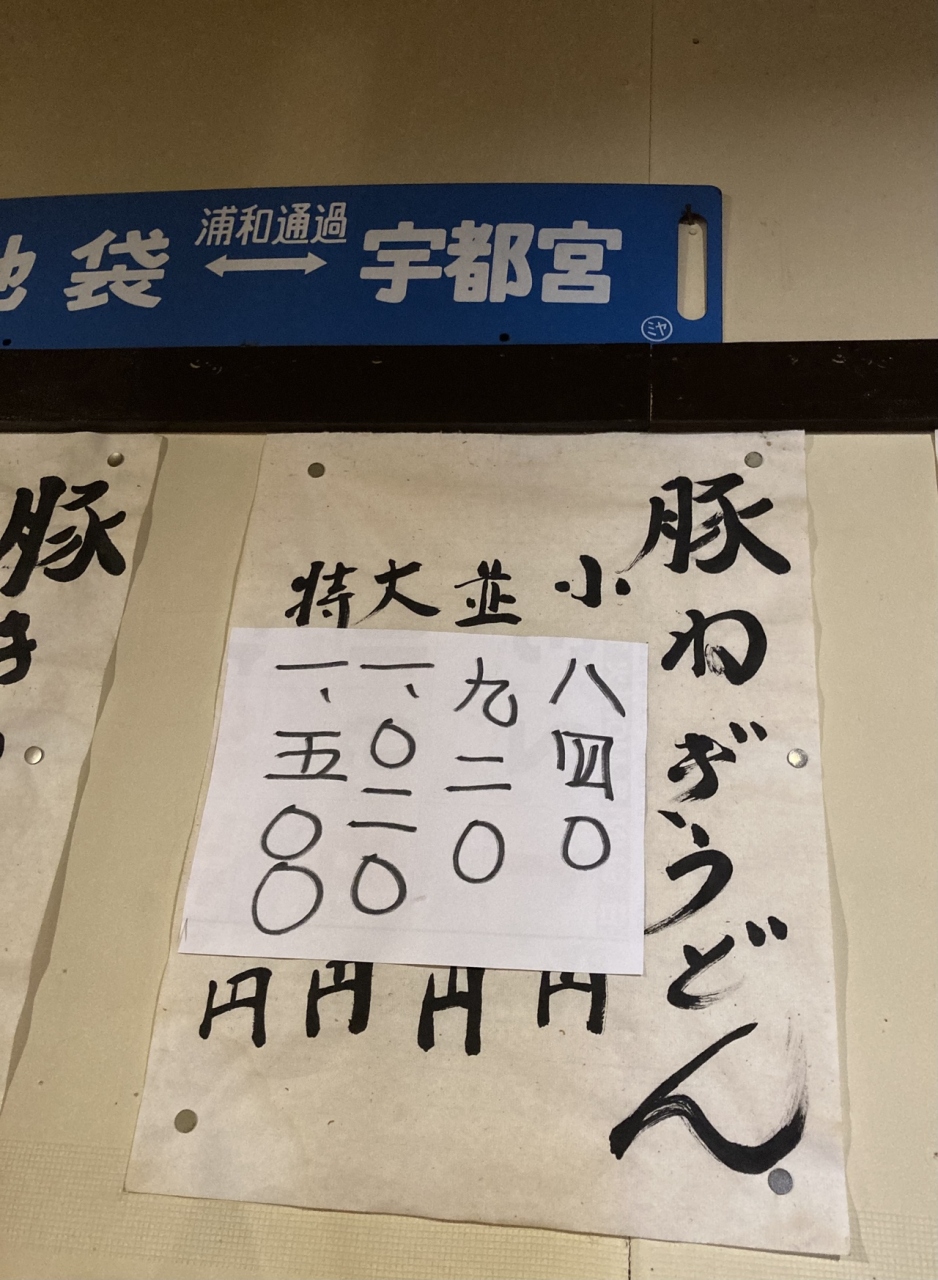 池袋
浦和通過
↔
宇都宮
ミヤ
豚ねぎうどん
小 八四〇円
並 九二〇円
大 一、〇二〇円
特 一、五〇〇円
豚